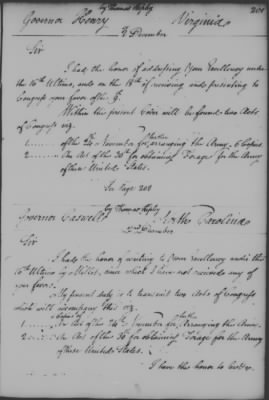 by Thomas Apsley 200
Governor Henry Virginia
2d December
Sir
I had the honor of addressing Your Excellency under
the 10th Ultimo, and on the 18th of receiving and presenting to
Congress your favor of the 9.
Within the present Cover will be found two Acts
of Congress viz.
1 of the 24 November for arranging the Army. 6 Copies
2 An Act of the 30th for obtaining Forage for the Army
of these United States.
See Page 208
by Thomas Apsley
Governor Caswell North Carolina
2nd December
Sir
I had the honor of writing to Your Excellency under the
10th Ultimo by Millet, since which I have not received any of
your favors.
My present duty is to transmit two Acts of Congress
which will accompany this viz.
1 Copies of An Act of the 24th November for farther Arranging the Army.
2 An Act of the 30th for obtaining Forage for the Army
of these United States.
I have the honor to be &c.